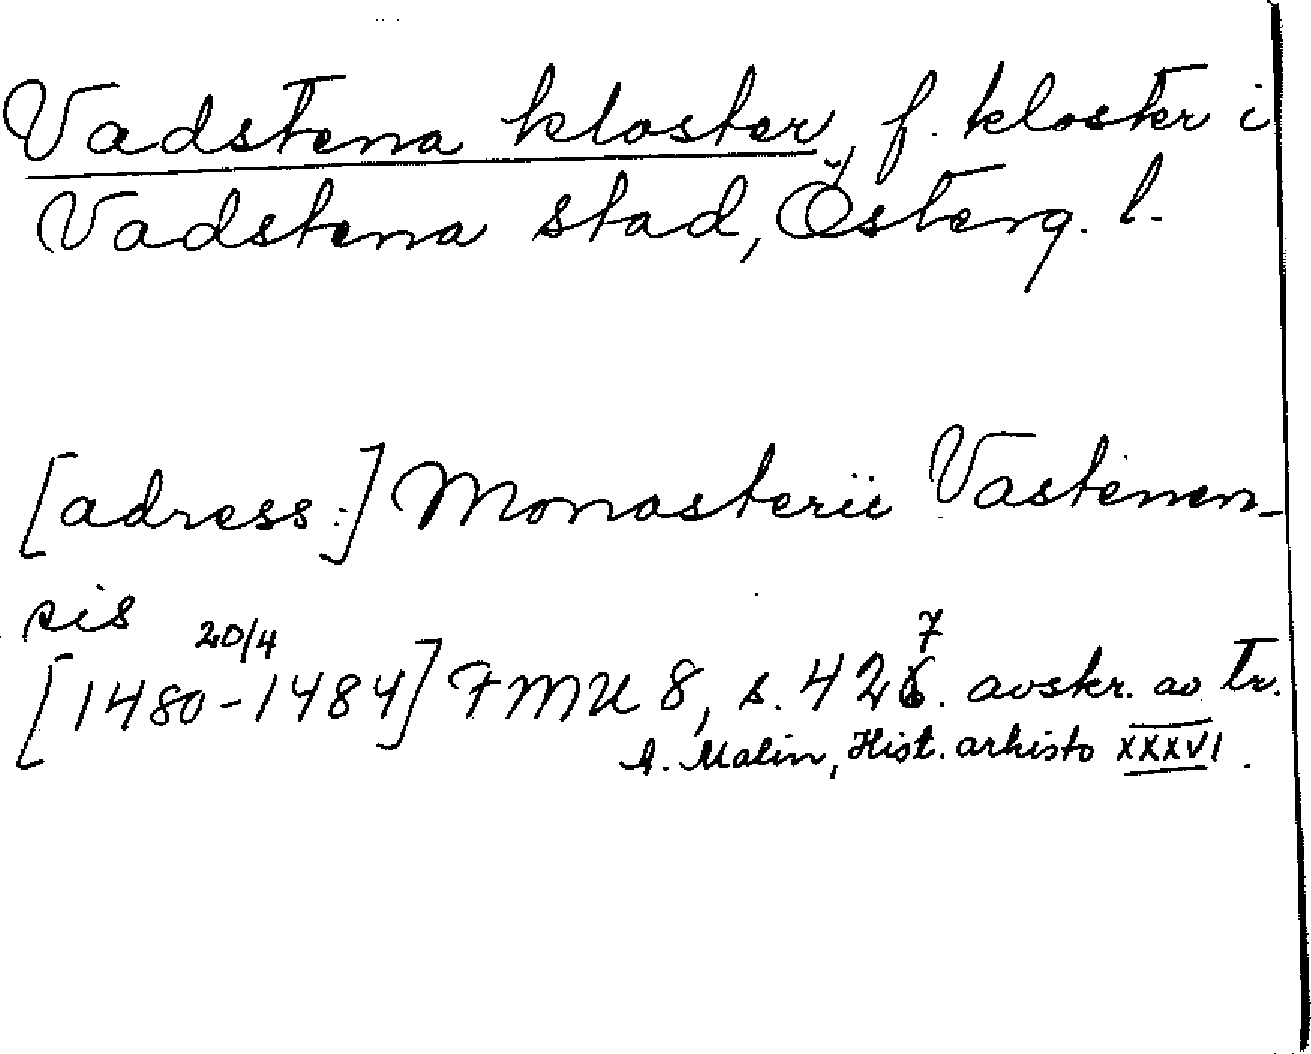 Vadstena kloster, f. kloster i
Vadstena stad, Österg. l.
[adress:] Monasterii Vastenen-
sis
20/4 7
[1480-1484] FMU 8, s. 426. avskr. av tr.
A. Malin, Hist. arkisto XXXVI.